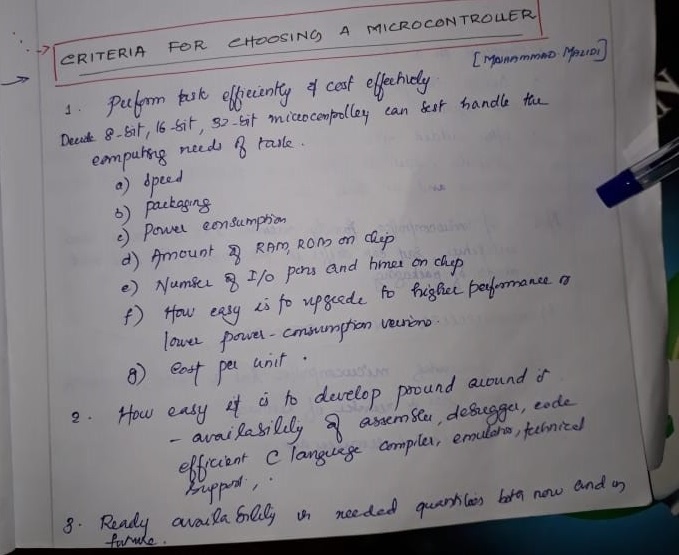 CRITERIA FOR CHOOSING A MICROCONTROLLER
[Mohammad Mazidi]
1. Perform task efficiently & cost effectively
Decide 8-bit, 16-bit, 32-bit microcontrolley can best handle the
computing needs of task.
a) Speed
b) packaging
c) Power consumption
d) Amount of RAM, ROM on chip
e) Number of I/O pins and timer on chip
f) How easy is to upgrade to higher performance or
lower power-consumption versions.
g) Cost per unit.
2. How easy it is to develop around it
- availability of assembler, debugger, code
efficient C language compiler, emulator, technical
support,
3. Ready availability in needed quantities both now and in
future.